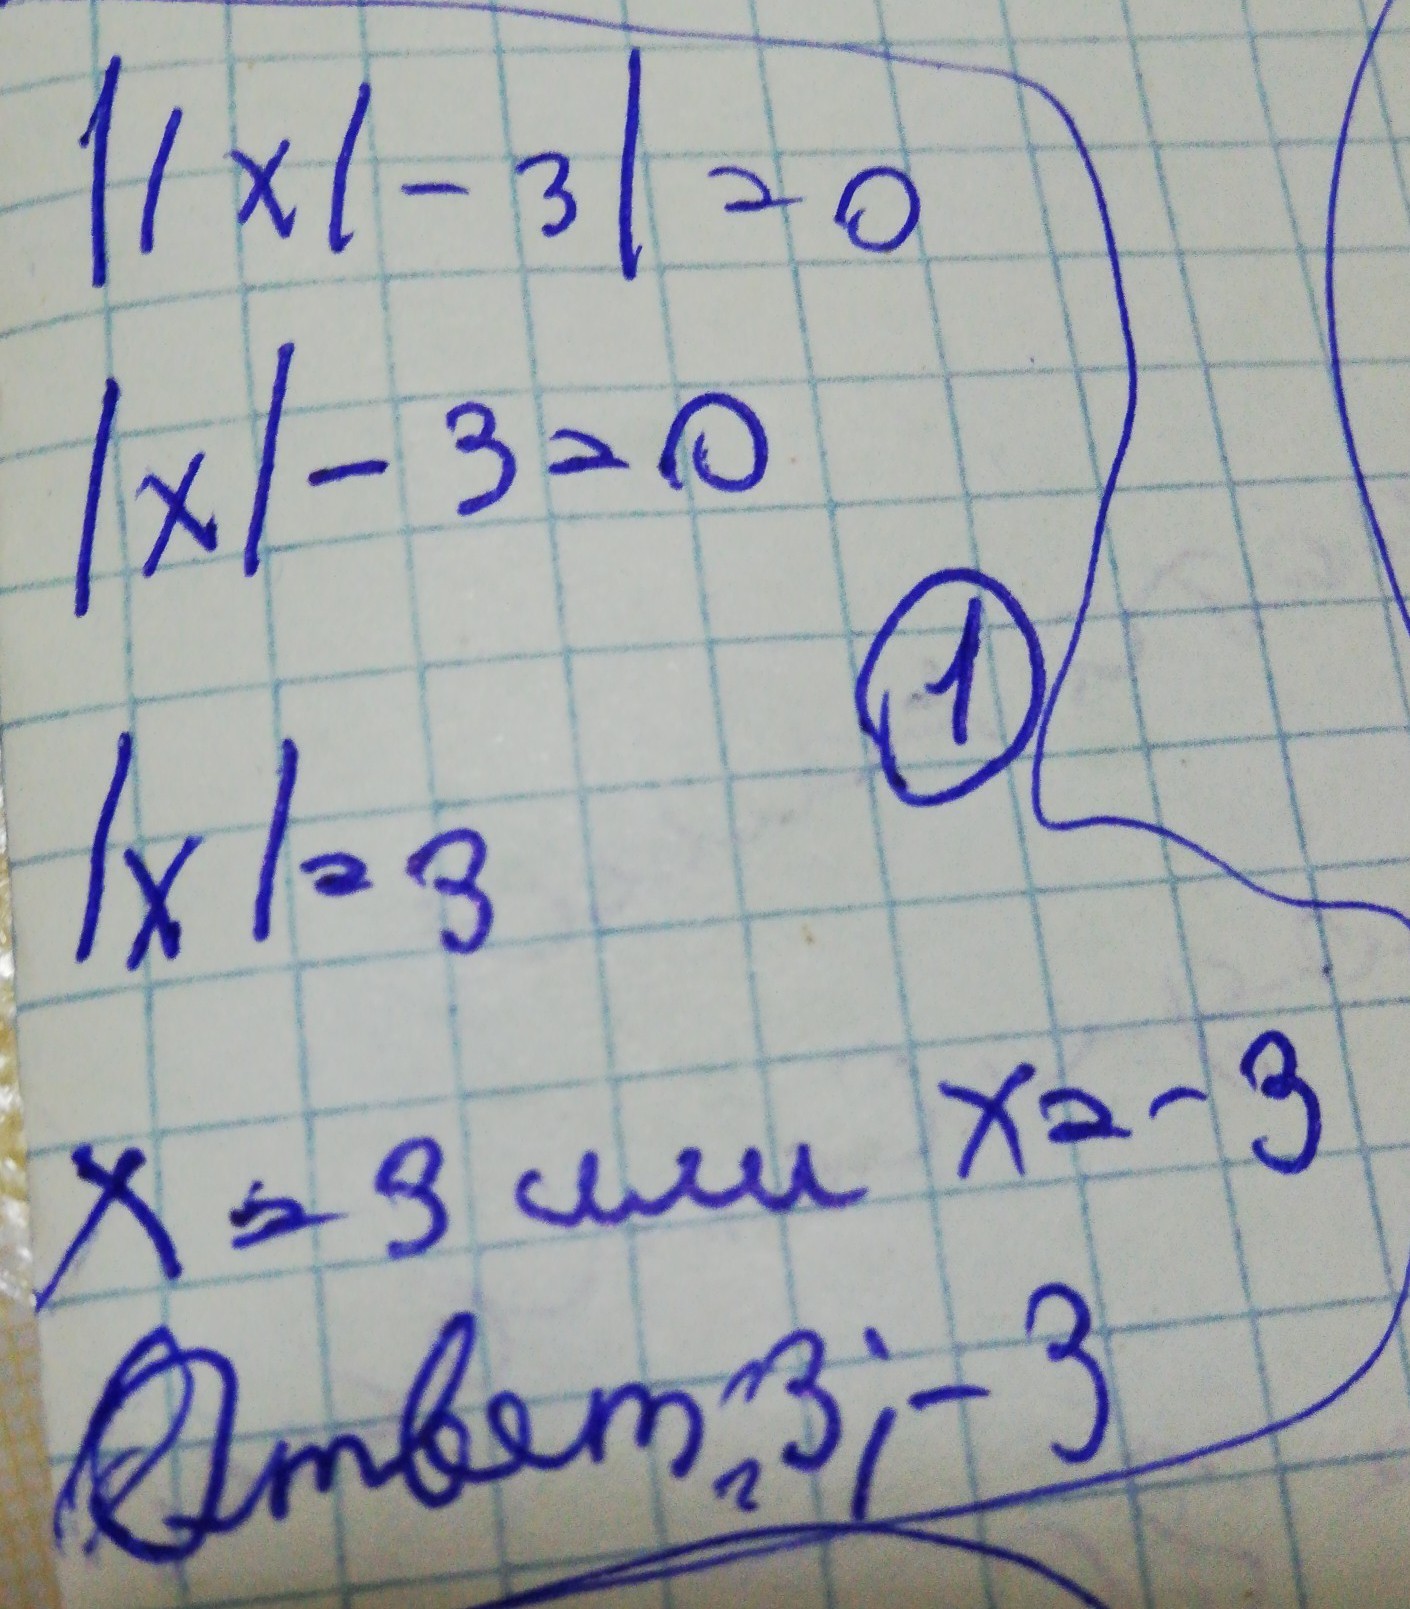 ||x|-3|=0
|x|-3=0
①
|x|=3
x=3 или x=-3
Ответ: 3; -3